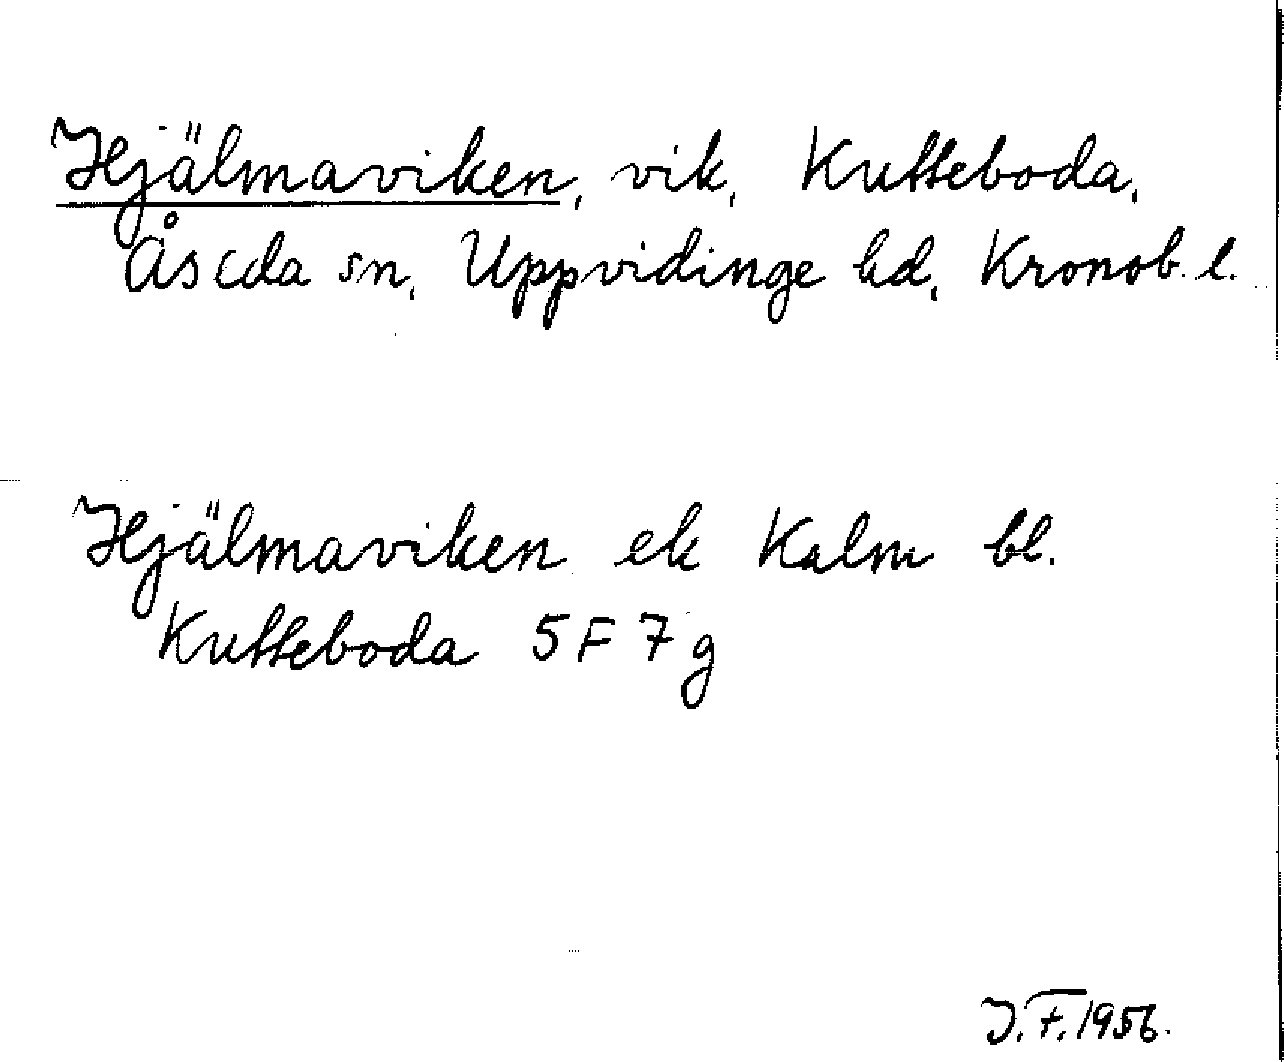 Hjälmaviken, vik, Kutteboda,
Åseda sn, Uppvidinge hd, Kronob. l.
Hjälmaviken ek Kalm bl.
Kutteboda 5F7g
J.F. 1956.